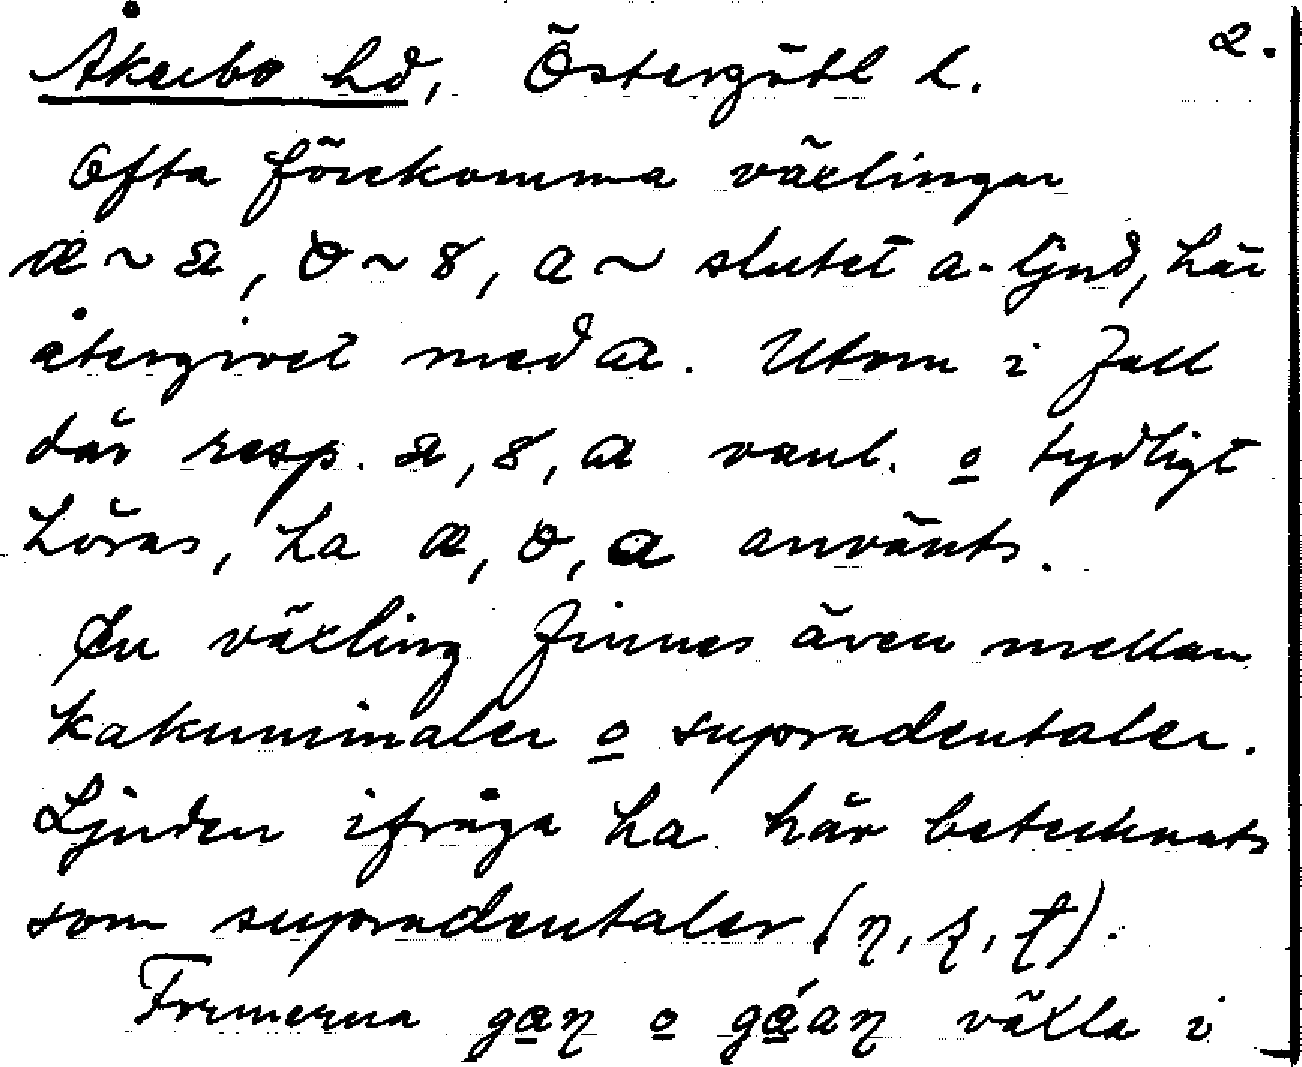 Åkerbo hd, Östergötl l. 2.
Ofta förekomma växlingar
æ ~ a, ꝋ ~ 8, a ~ slutet a-ljud, här
återgivet med a. Utom i fall
där resp. a, 8, a vanl. o tydligt
höras, ha æ, ꝋ, a använts.
En växling finnes även mellan
kakuminaler o supradentaler.
Ljuden ifråga ha här betecknats
som supradentaler (ɳ, ʂ, ʈ).
Formerna gaɳ o gáaɳ växla i